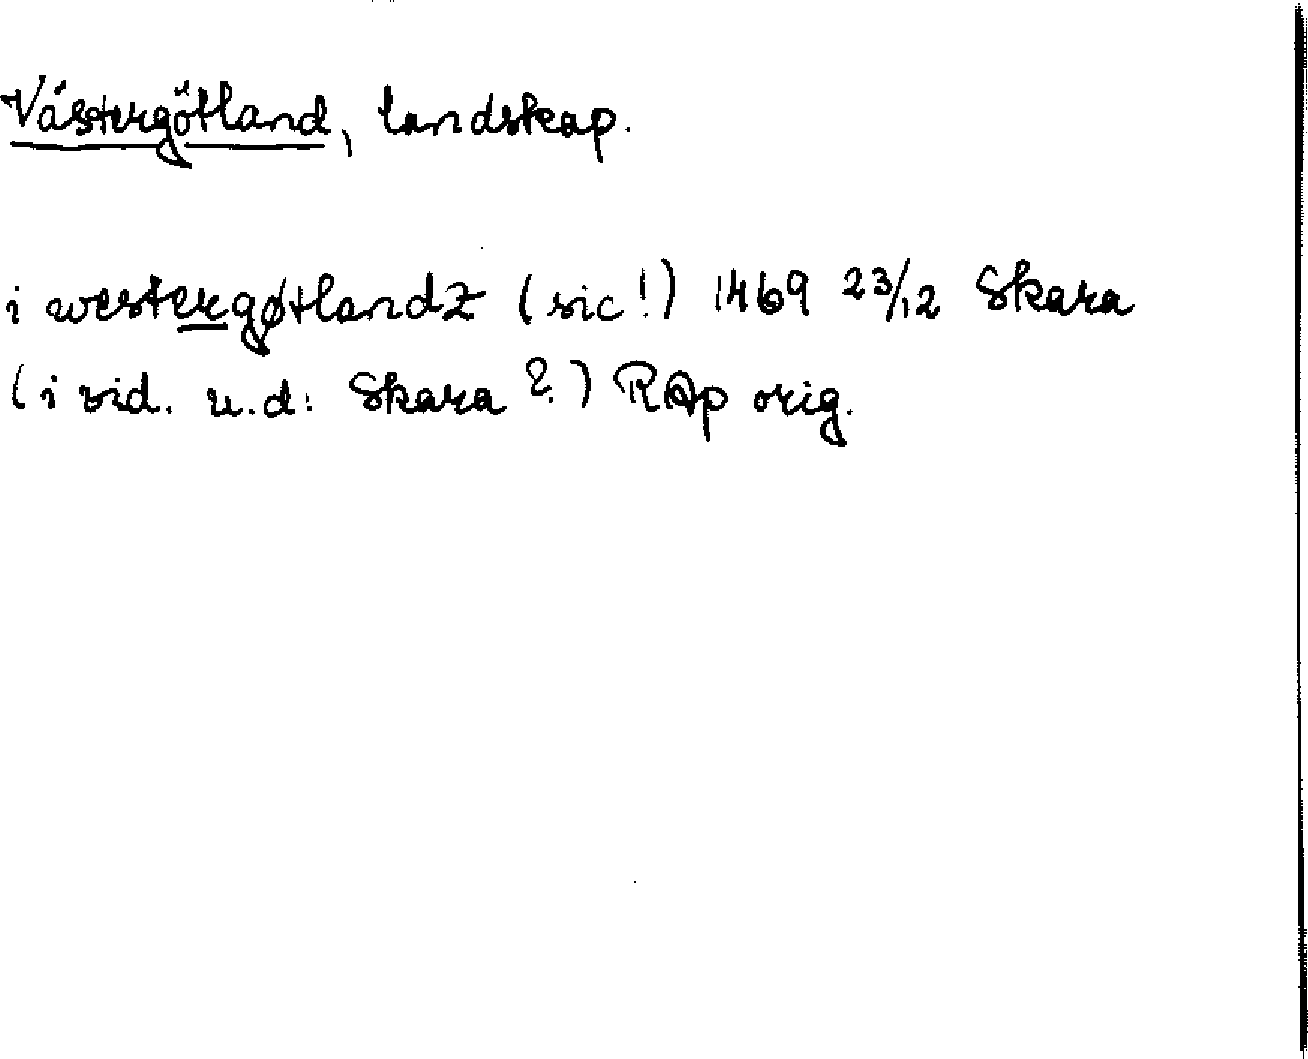 Västergötland, landskap.
i westergøtlandz (sic!) 1469 23/12 Skara
(i vid. u.d: Skara?) RAp orig.